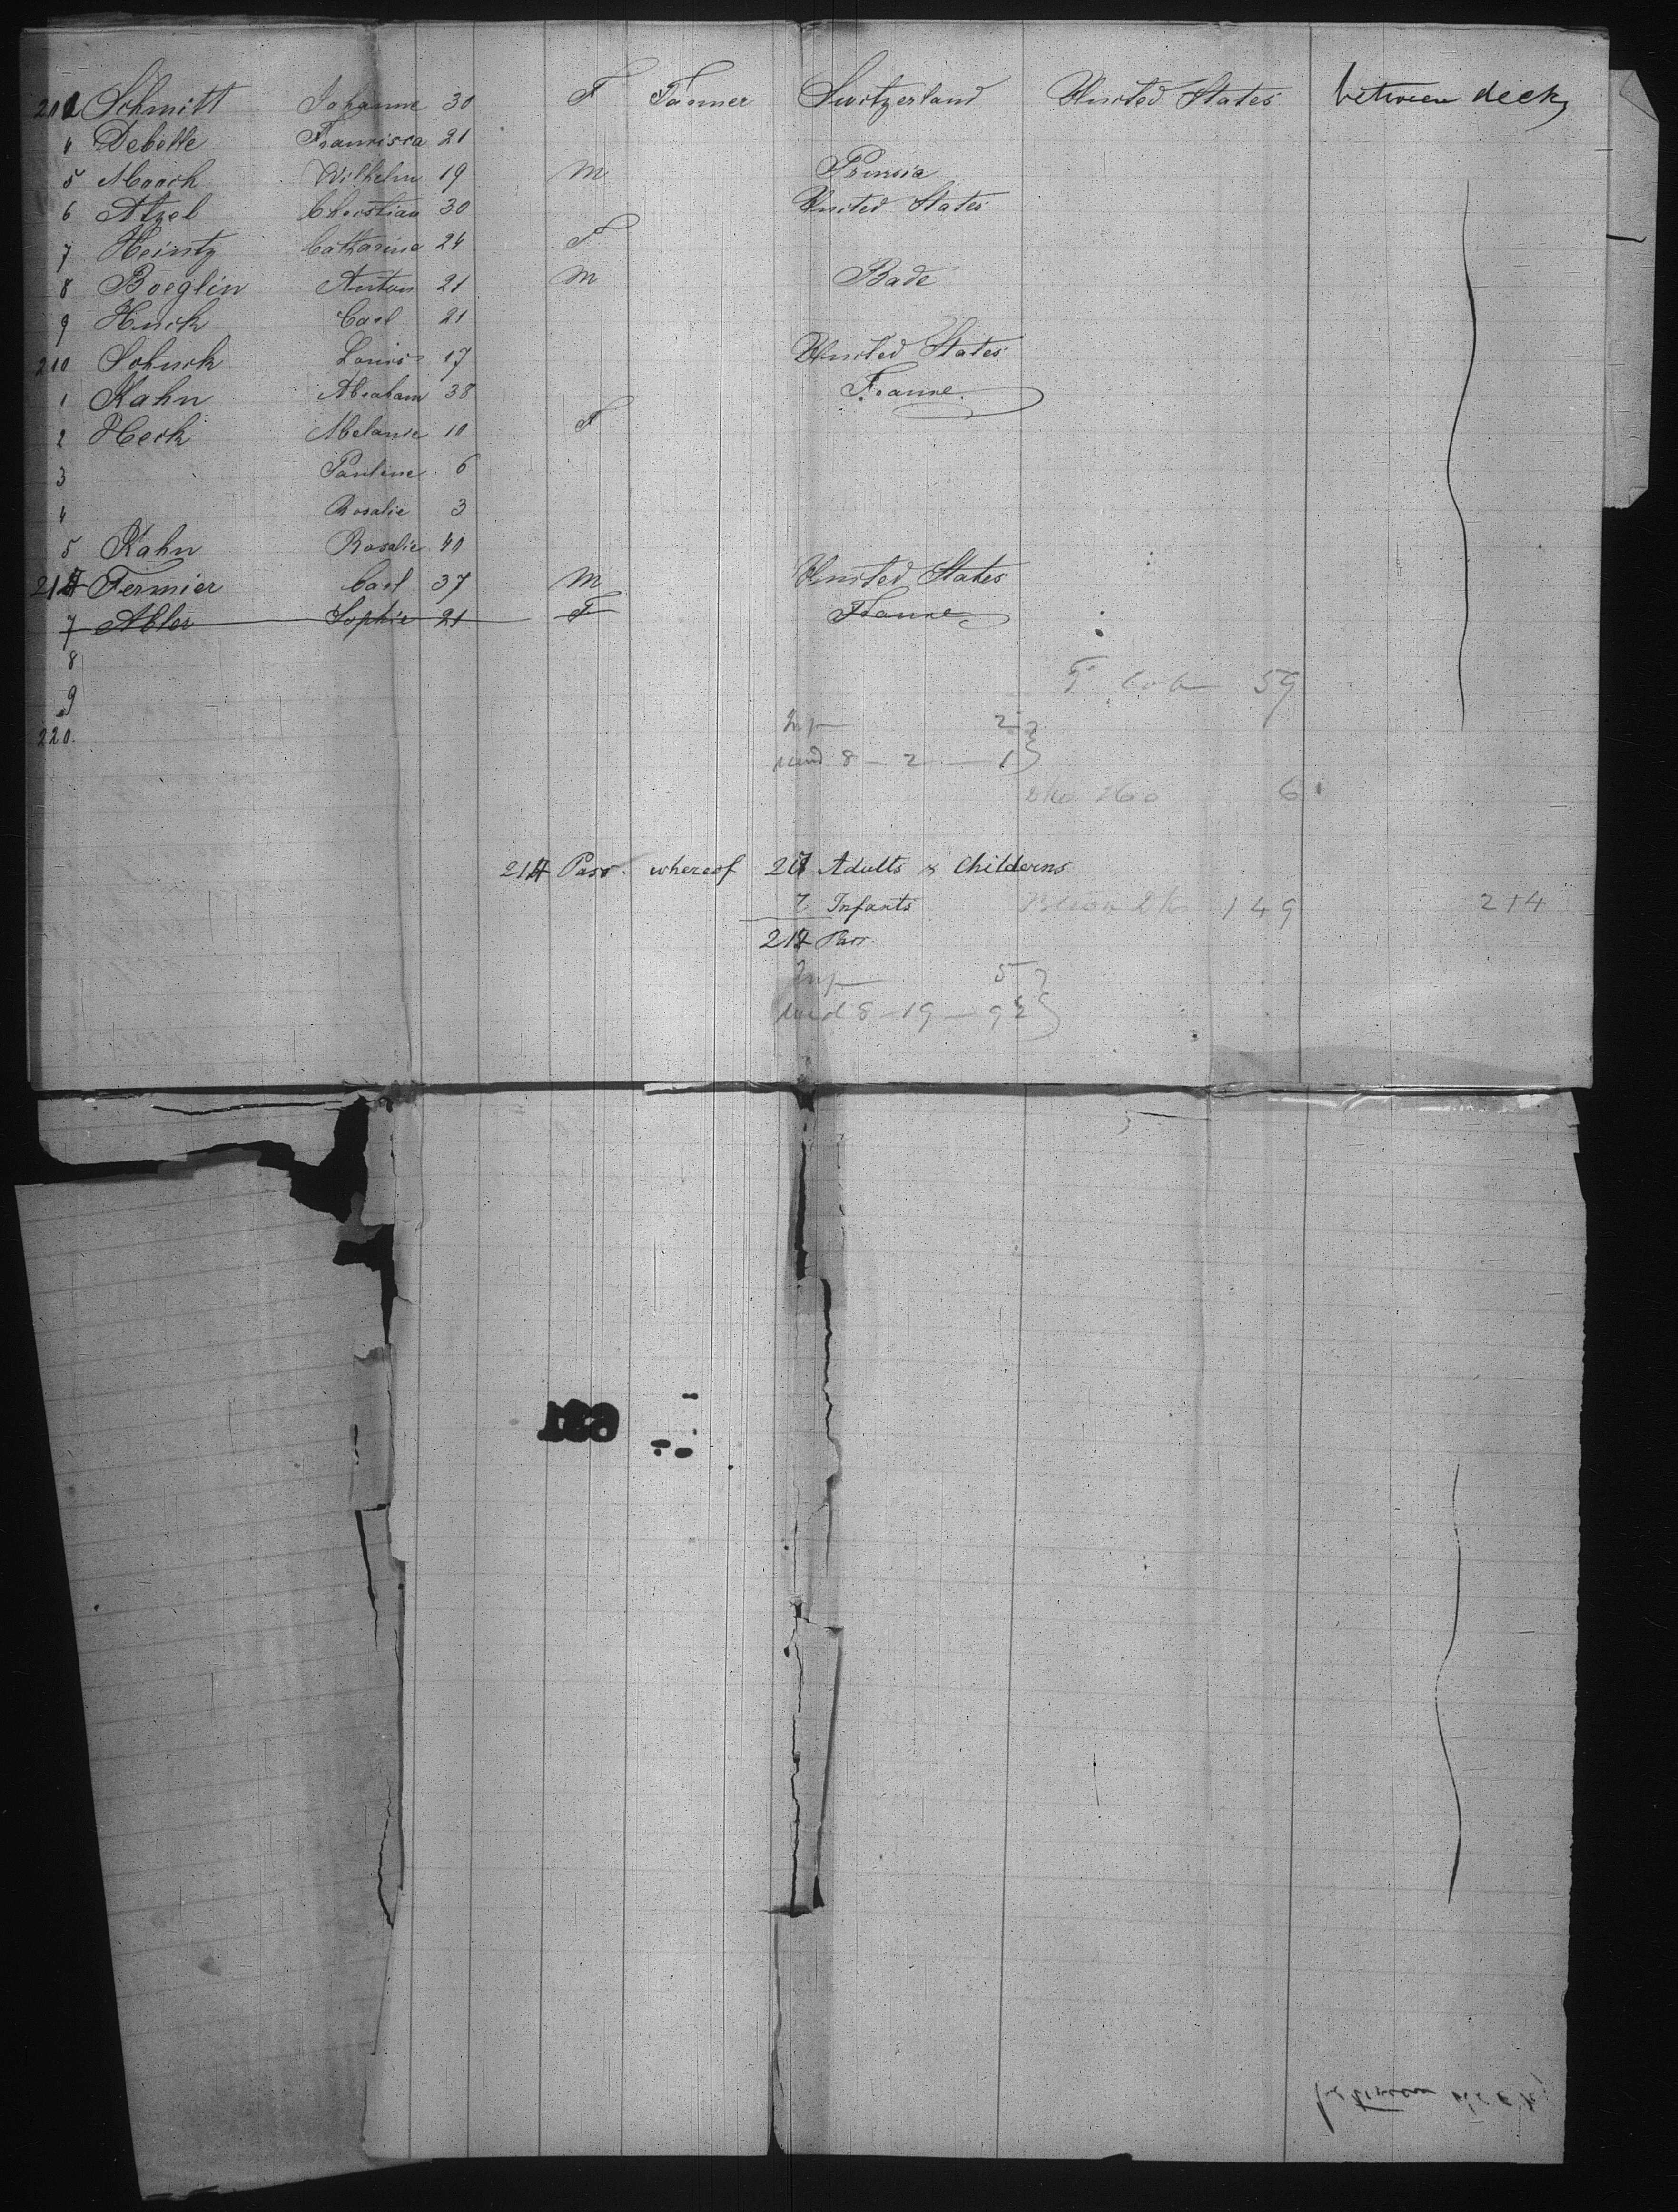 Schmitt Johanne 30 F Farmer Switzerland United States between deck
4 Debelle Francisca 21
5 Maack Wilhelm 19 M Prussia
6 Atzel Christian 30 United States
7 Heintz Catharina 24 F
8 Boeglin Anton 21 M Bade
9 Huck Carl 21
210 Schuck Louis 17 United States
1 Kahn Abraham 38 France
2 Heck Melanie 10 F
3 Pauline 6
4 Rosalie 3
5 Kahn Rosalie 40
214 Fermier Carl 37 M United States
7 Abler Sophie 21 F France
8
9 59
220.
2
8 - 2 - 1
6
214 Pass. whereof 207 Adults & Childerns
7 Infants 149 214
214 Pass.
5
8 - 19 - 92
between deck